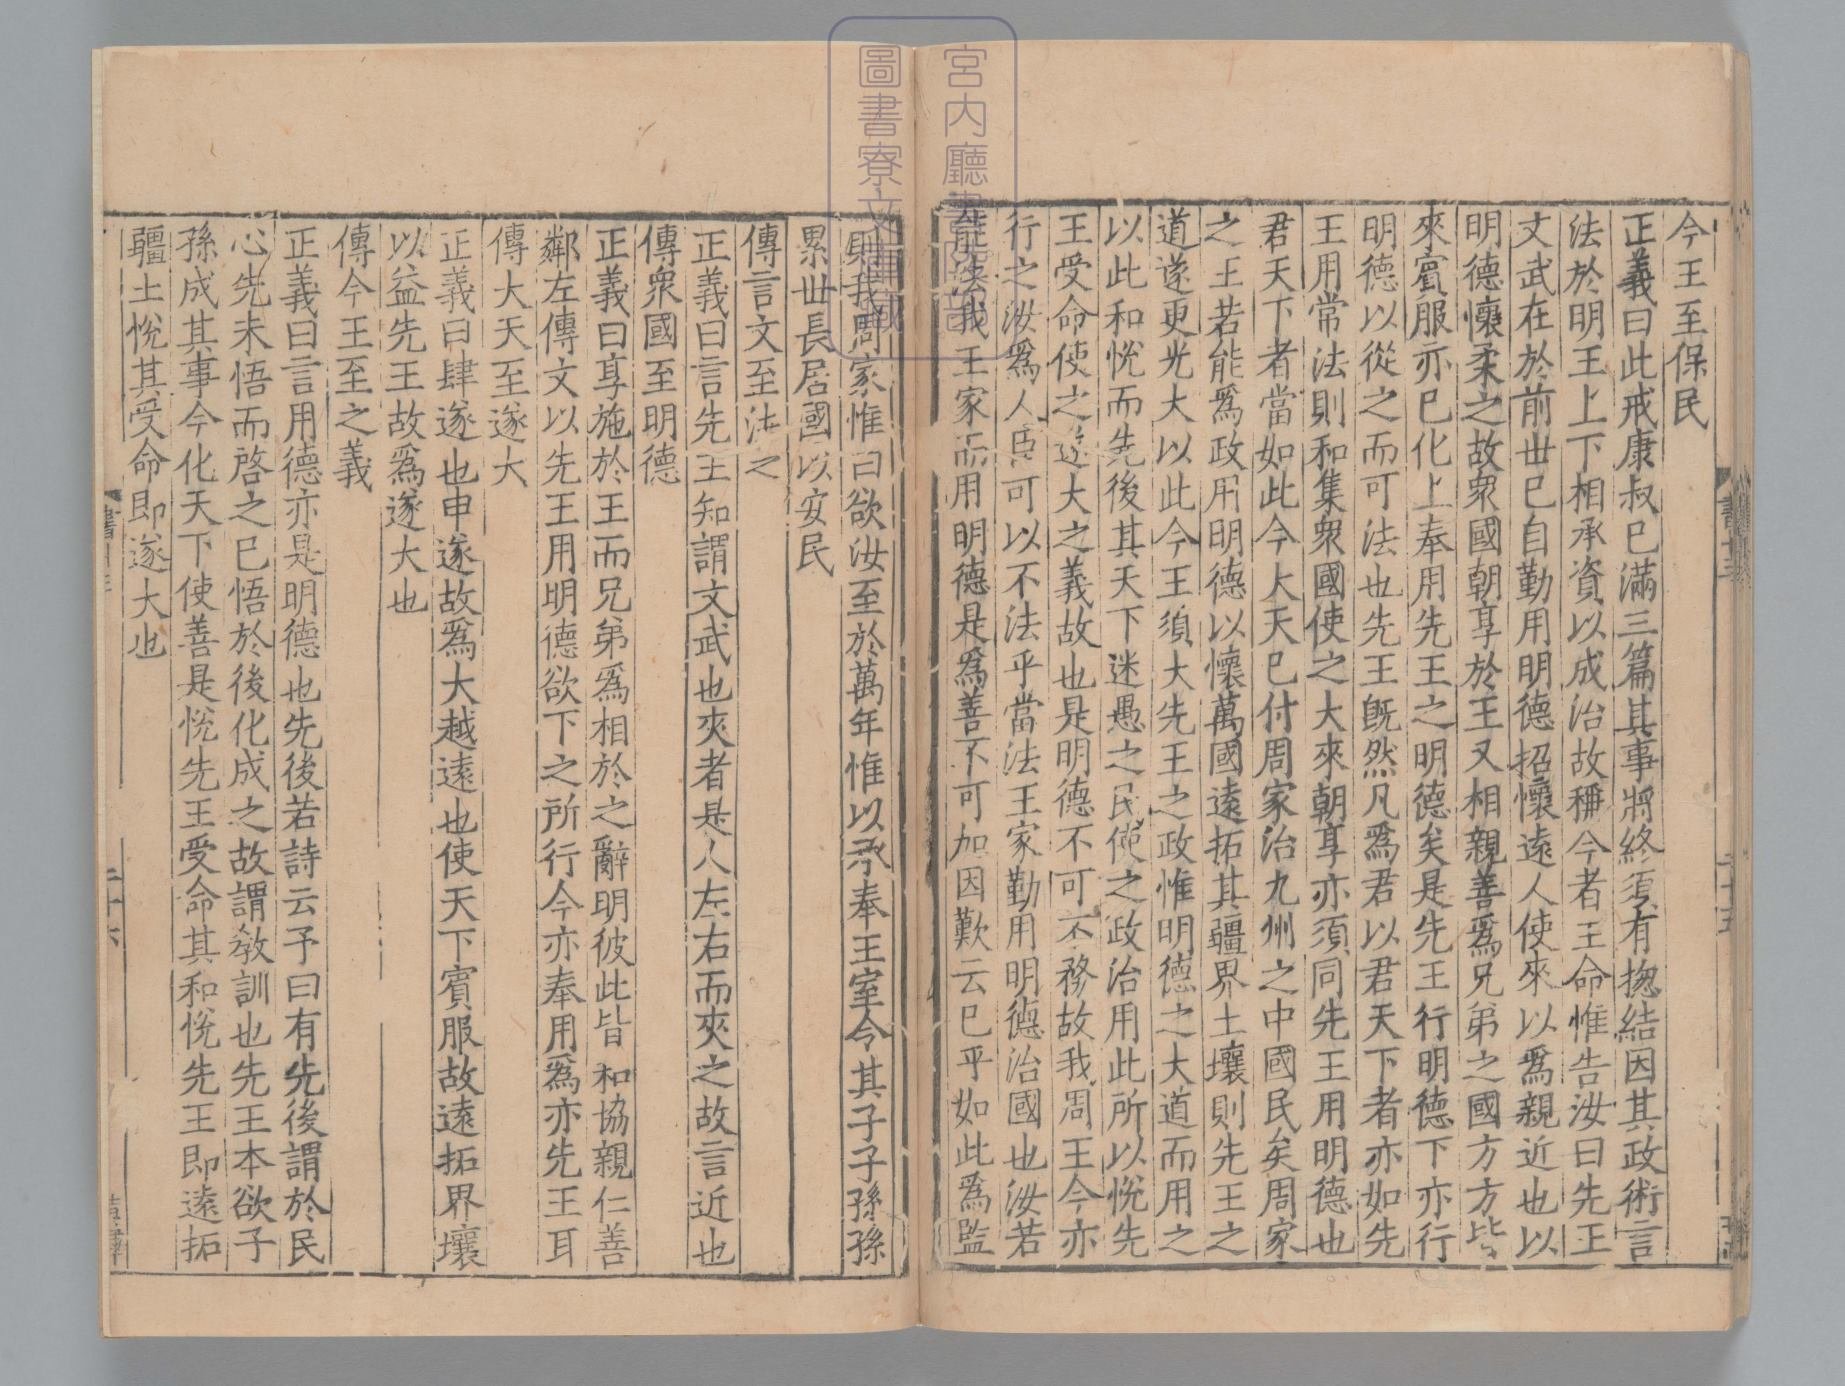 今王至保民
正義曰此戒康叔已滿三篇其事將終須有揔結因其政術言
法於明王上下相承資以成治故稱今者王命惟告汝曰先王
文武在於前世已自勤用明德招懷遠人使來以爲親近也以
明德懷柔之故衆國朝享於王又相親善爲兄弟之國方方皆
來賓服亦已化上奉用先王之明德矣是先王行明德下亦行
明德以從之而可法也先王旣然凡爲君以君天下者亦如先
王用常法則和集衆國使之大來朝享亦須同先王用明德也
君天下者當如此今大天已付周家治九州之中國民矣周家
之王若能爲政用明德以懷萬國遠拓其疆界土壤則先王之
道遂更光大以此今王須大先王之政惟明德之大道而用之
以此和悅而先後其天下迷愚之民使之政治用此所以悅先
王受命使之遂大之義故也是明德不可不務故我周王今亦
行之汝爲人臣可以不法乎當法王家勤用明德治國也汝若
能法我王家而用明德是爲善不可加因歎云已乎如此爲監
則我周家惟曰欲汝至於萬年惟以承奉王室令其子子孫孫
累世長居國以安民
傳言文至法之
正義曰言先王知謂文武也夾者是人左右而夾之故言近也
傳衆國至明德
正義曰享施於王而兄弟爲相於之辭明彼此皆和協親仁善
鄰左傳文以先王用明德欲下之所行今亦奉用爲亦先王耳
傳大天至遂大
正義曰肆遂也申遂故爲大越遠也使天下賓服故遠拓界壤
以益先王故爲遂大也
傳今王至之義
正義曰言用德亦是明德也先後若詩云予曰有先後謂於民
心先未悟而啓之已悟於後化成之故謂敎訓也先王本欲子
孫成其事今化天下使善是悅先王受命其和悅先王即遠拓
疆土悅其受命即遂大也
二十六
宮内廳書陵部
圖書寮文庫藏